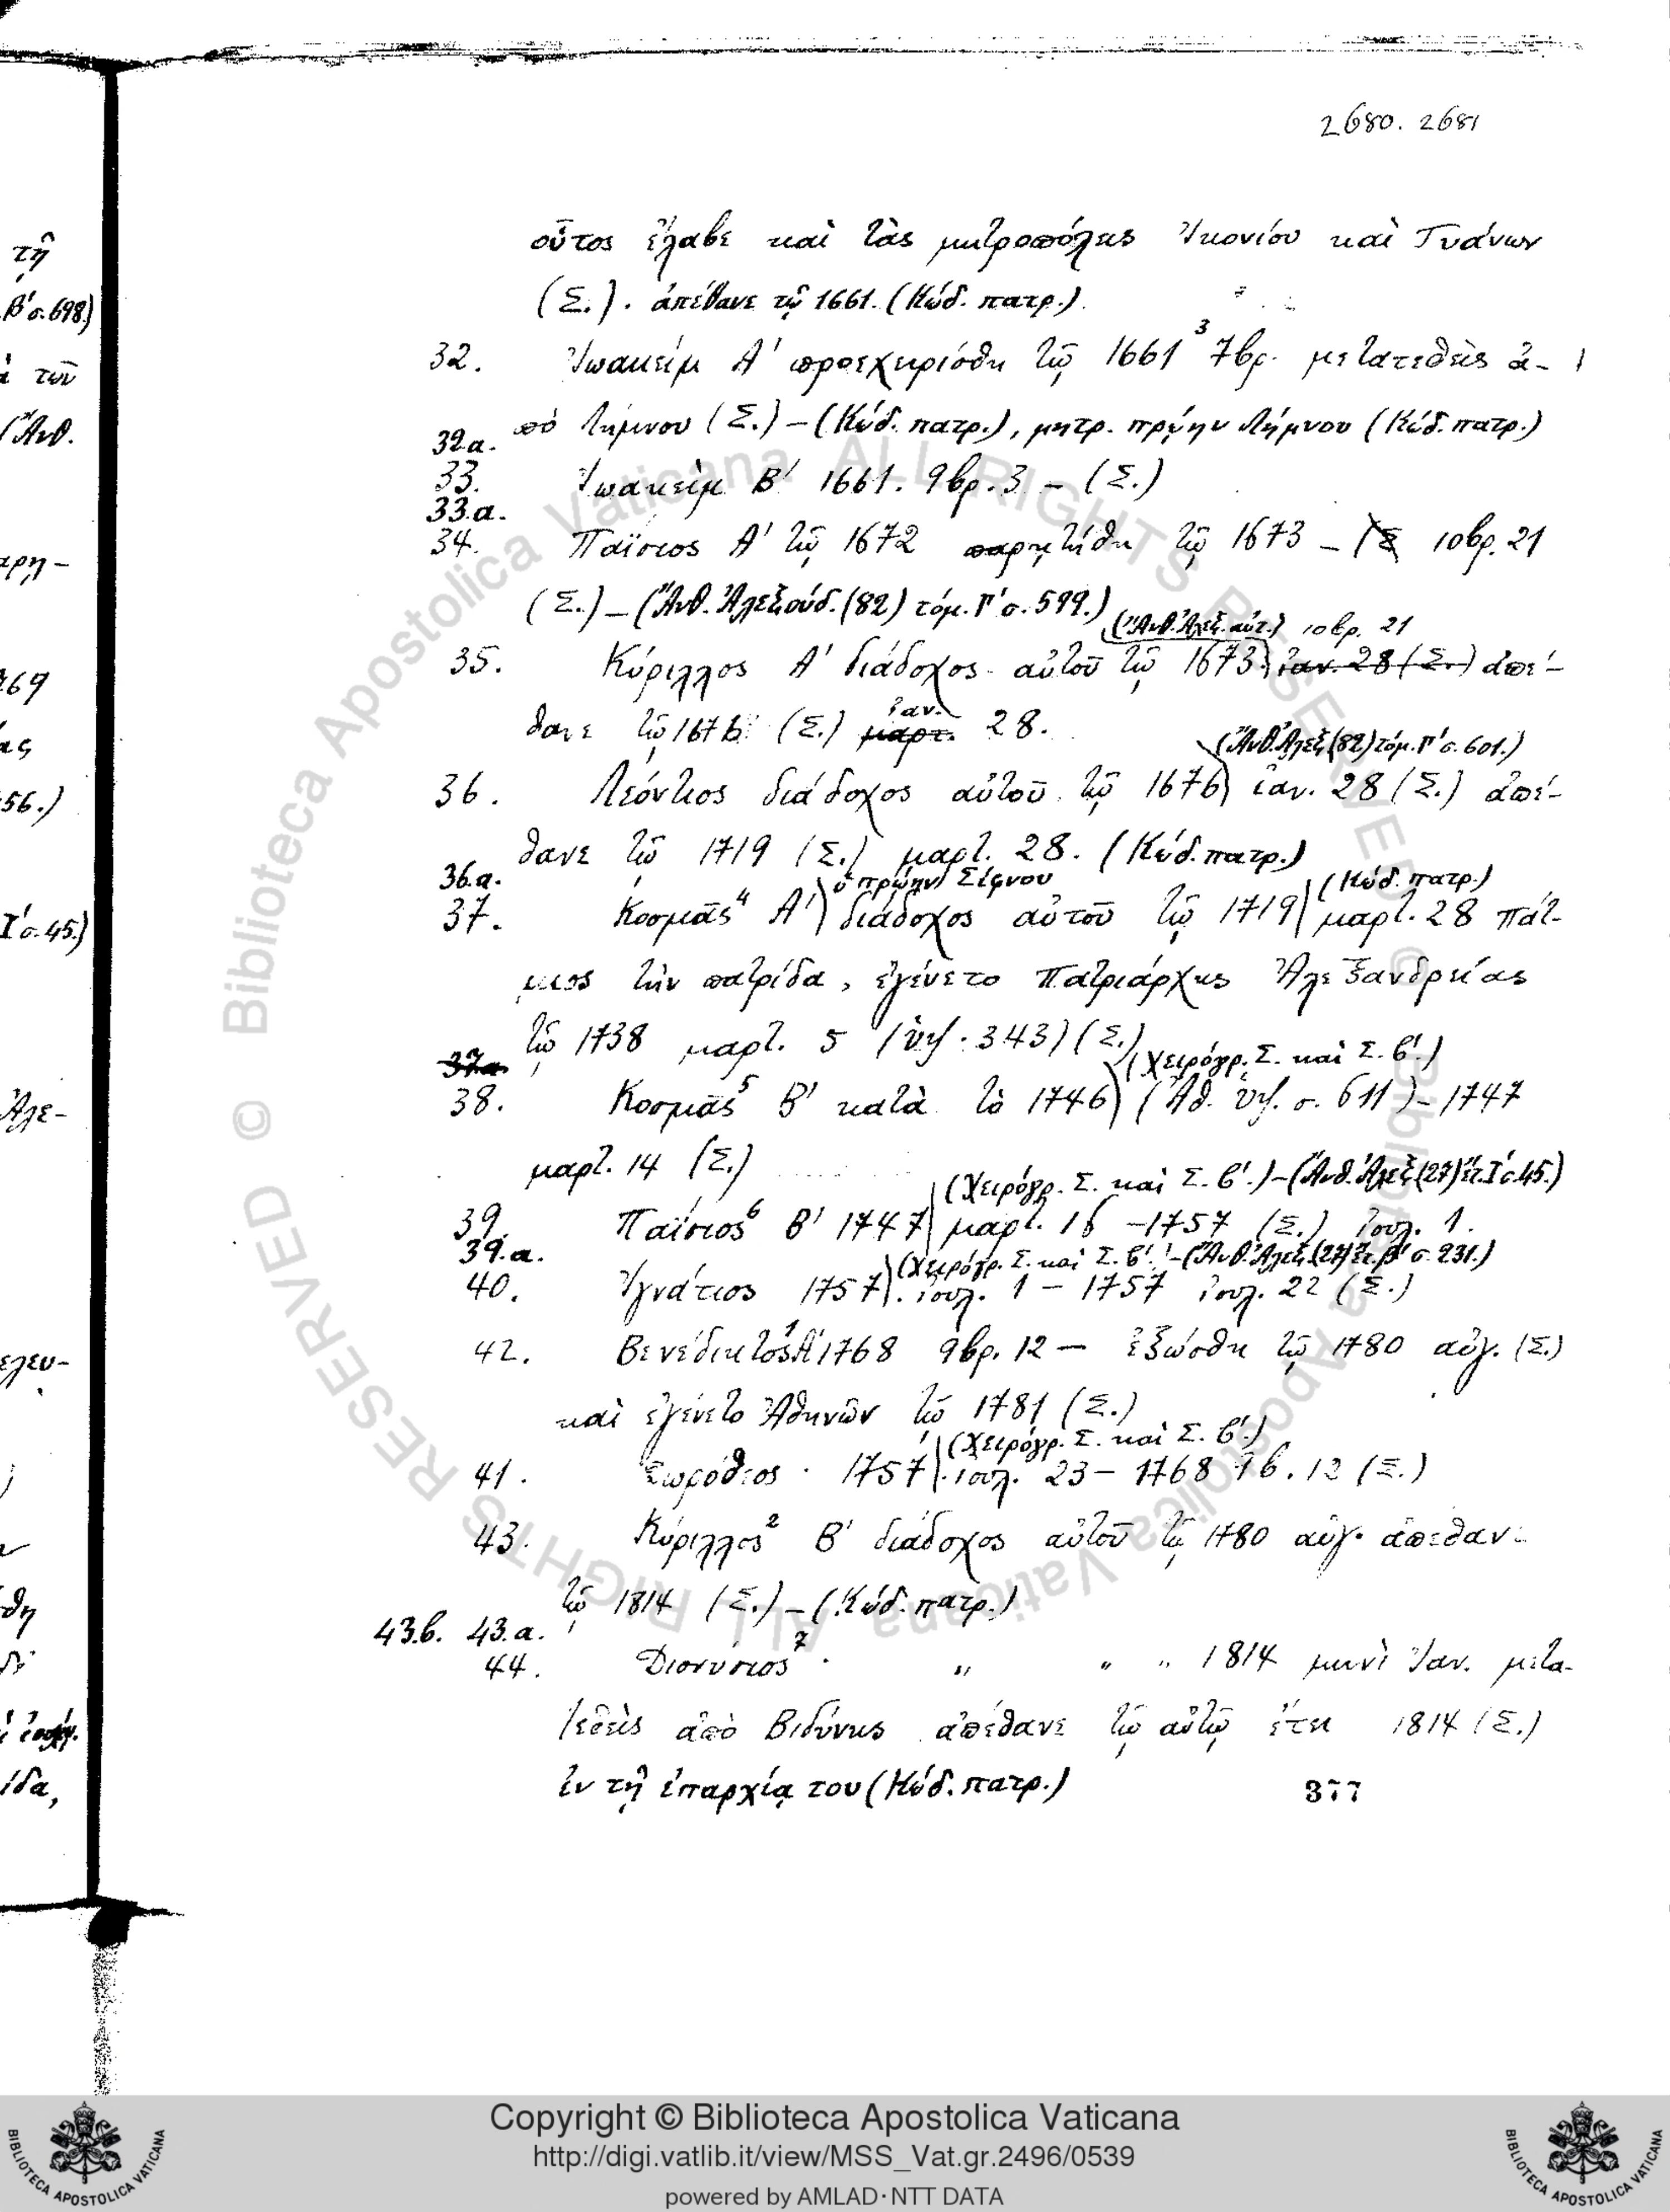 2680. 2681
οὗτος ἔλαβε καὶ τὰς μητροπόλεις Ἰκονίου καὶ Τυάνων
(Σ.). ἀπέθανε τῷ 1661. (Κώδ. πατρ.)
32. Ἰωακεὶμ Α' προεχειρίσθη τῷ 1661 ³ 7βρ. μετατεθεὶς ἀ-
πὸ Λήμνου (Σ.) – (Κώδ. πατρ.), μητρ. πρώην Λήμνου (Κώδ. πατρ.)
32.α.
33. Ἰωακεὶμ Β' 1661. 9βρ. 3 – (Σ.)
33.α.
34. Παΐσιος Α' τῷ 1672 παρῃτήθη τῷ 1673 – 10βρ. 21
(Σ.) – (Ἄνθ. Ἀλεξούδ. (82) τόμ. Γ' σ. 599.)
(Ἄνθ. Ἀλεξ. αὐτ.) 10βρ. 21
35. Κύριλλος Α' διάδοχος αὐτοῦ τῷ 1673 ἰαν. 28 (Σ.) ἀπέ-
θανε τῷ 1676 (Σ.) μαρτ. ἰαν. 28.
(Ἄνθ. Ἀλεξ. (82) τόμ. Γ' σ. 601.)
36. Λεόντιος διάδοχος αὐτοῦ τῷ 1676 ἰαν. 28 (Σ.) ἀπέ-
θανε τῷ 1719 (Σ.) μαρτ. 28. (Κώδ. πατρ.)
36.α. ὁ πρώην Σίφνου (Κώδ. πατρ.)
37. Κοσμᾶς⁴ Α' διάδοχος αὐτοῦ τῷ 1719 μαρτ. 28 Πάτ-
μιος τὴν πατρίδα, ἐγένετο Πατριάρχης Ἀλεξανδρείας
τῷ 1738 μαρτ. 5 (ὑψ. 343) (Σ.)
37.α. (Χειρόγρ. Σ. καὶ Σ. β'.)
38. Κοσμᾶς⁵ Β' κατὰ τὸ 1746 (Ἀθ. ὑψ. σ. 611) – 1747
μαρτ. 14 (Σ.)
(Χειρόγρ. Σ. καὶ Σ. β'.) – (Ἄνθ. Ἀλεξ. (27) ἔτ. Ι' σ. 45.)
39. Παΐσιος⁶ Β' 1747 μαρτ. 16 – 1757 (Σ.) ἰουλ. 1.
39.α. (Χειρόγρ. Σ. καὶ Σ. β'.) – (Ἄνθ. Ἀλεξ. (27) ἔτ. β' σ. 231.)
40. Ἰγνάτιος 1757. ἰουλ. 1 – 1757 ἰουλ. 22 (Σ.)
42. Βενέδικτος¹ Α' 1768 9βρ. 12 – ἐξώσθη τῷ 1780 αὐγ. (Σ.)
καὶ ἐγένετο Ἀθηνῶν τῷ 1781 (Σ.)
(Χειρόγρ. Σ. καὶ Σ. β'.)
41. 1757. ἰουλ. 23 – 1768 9β. 12 (Σ.)
43. Κύριλλος² Β' διάδοχος αὐτοῦ τῷ 1780 αὐγ. ἀπέθανε
τῷ 1814 (Σ.) – (Κώδ. πατρ.)
43.β. 43.α.
44. Διονύσιος⁷ " " " 1814 μηνὶ Ἰαν. μετα-
τεθεὶς ἀπὸ Βιδύνης ἀπέθανε τῷ αὐτῷ ἔτει 1814 (Σ.)
ἐν τῇ ἐπαρχίᾳ του (Κώδ. πατρ.)
377
τῇ
β' σ. 698)
τῶν
(Ἄνθ.
αρη-
269
ας
56.)
Ι' σ. 45.)
Ἀλε-
ελευ-
θη
ίδα,
© Biblioteca Apostolica Vaticana ALL RIGHTS RESERVED
© Biblioteca Apostolica Vaticana ALL RIGHTS RESERVED
Copyright © Biblioteca Apostolica Vaticana
http://digi.vatlib.it/view/MSS_Vat.gr.2496/0539
powered by AMLAD·NTT DATA
BIBLIOTECA APOSTOLICA VATICANA
BIBLIOTECA APOSTOLICA VATICANA